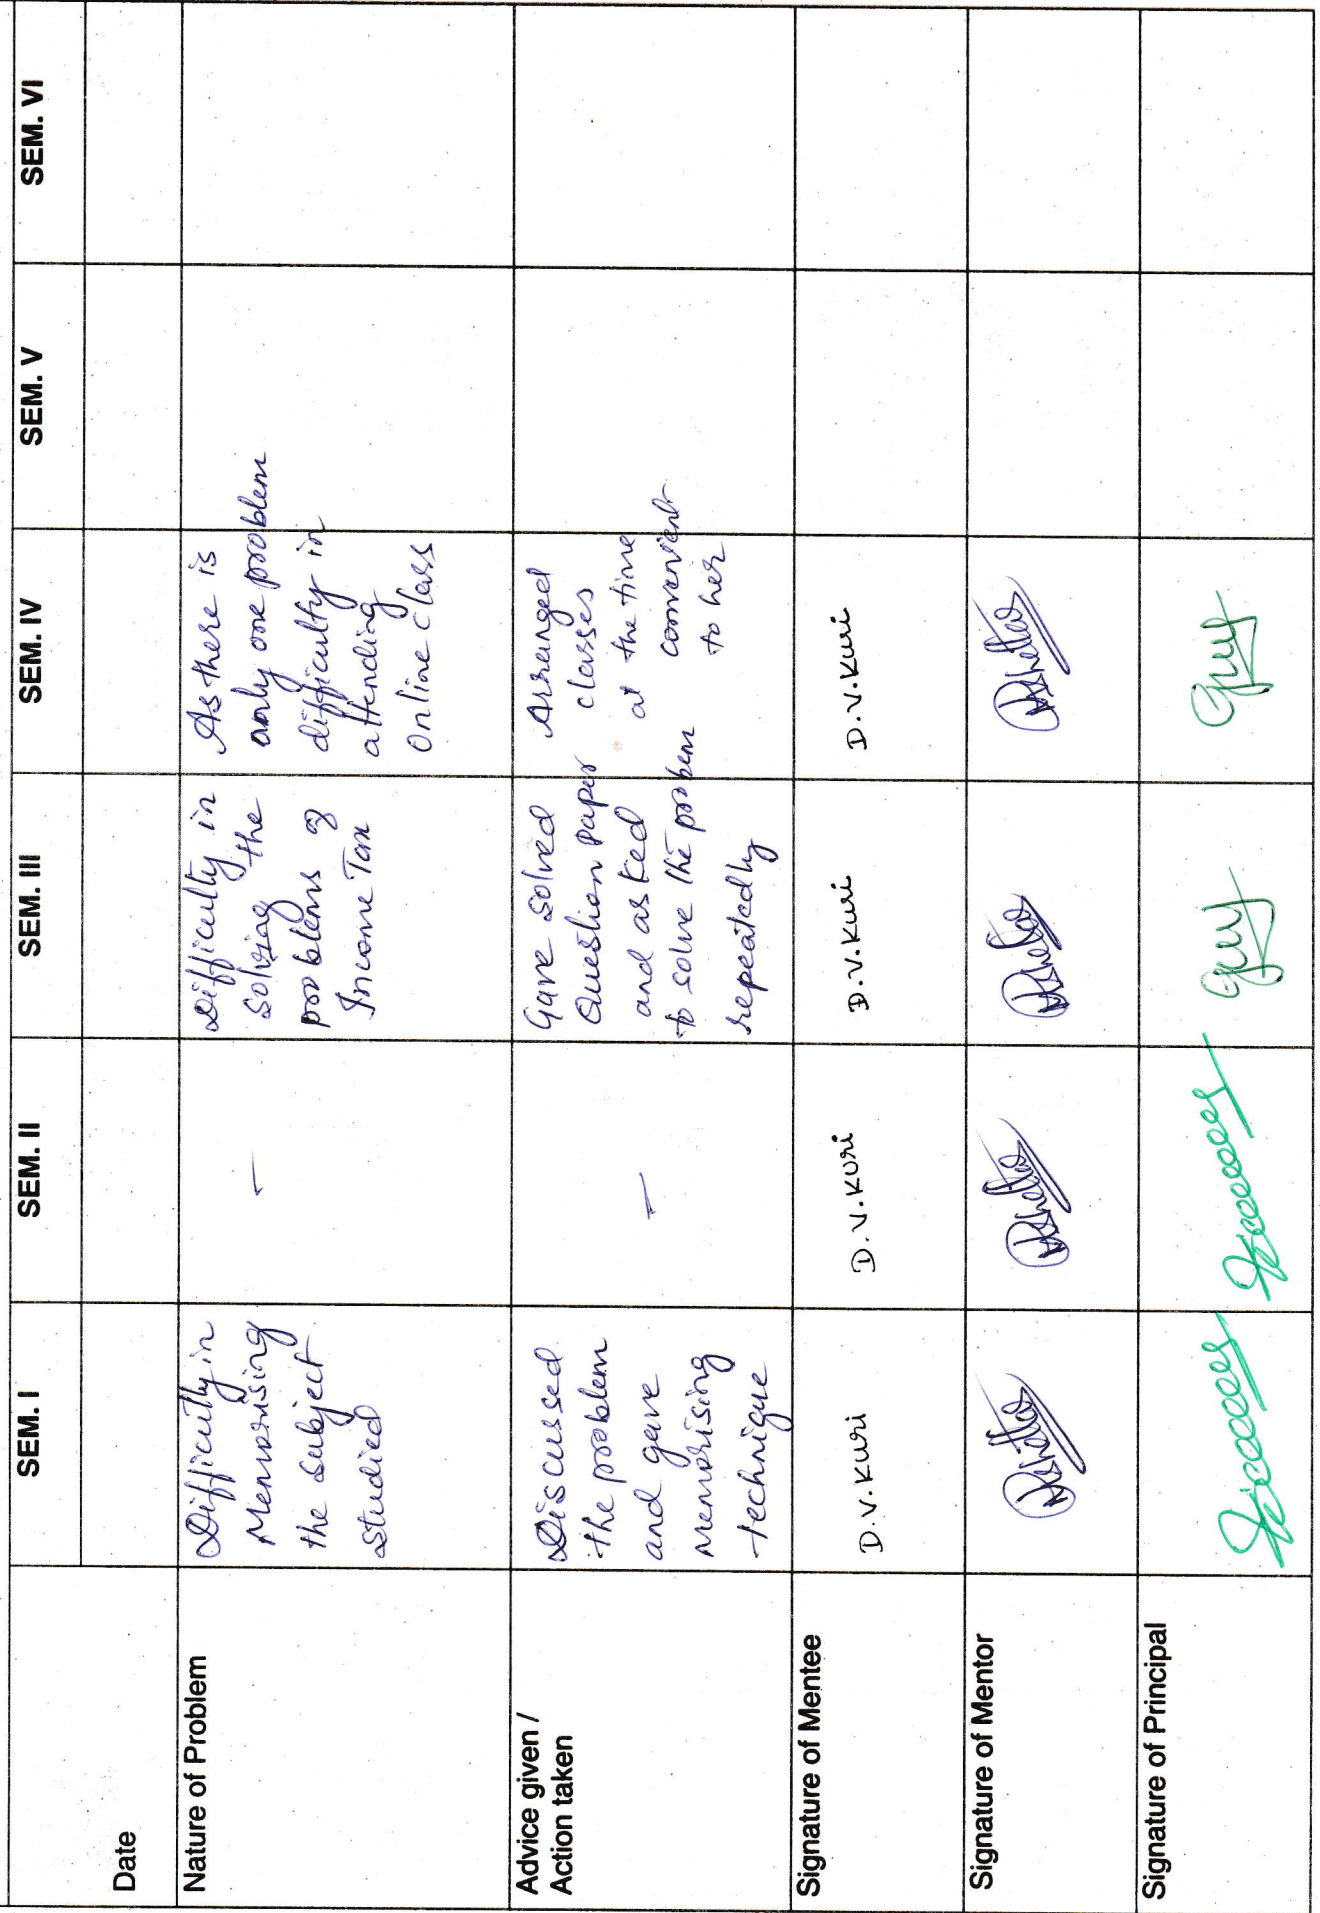 SEM. I SEM. II SEM. III SEM. IV SEM. V SEM. VI
Date
Nature of Problem
Difficulty in
Memorising
the subject
studied
-
Difficulty in
solving the
problems of
Income Tax
As there is
only one problem
difficulty in
attending
Online class
Advice given /
Action taken
Discussed
the problem
and gave
memorising
technique
-
Gave solved
Question Paper
and asked
to solve the problem
repeatedly
Arranged
classes
at the time
convenient
to her
Signature of Mentee
D.V.Kuri
D.V.Kuri
D.V.Kuri
D.V.Kuri
Signature of Mentor
Signature of Principal